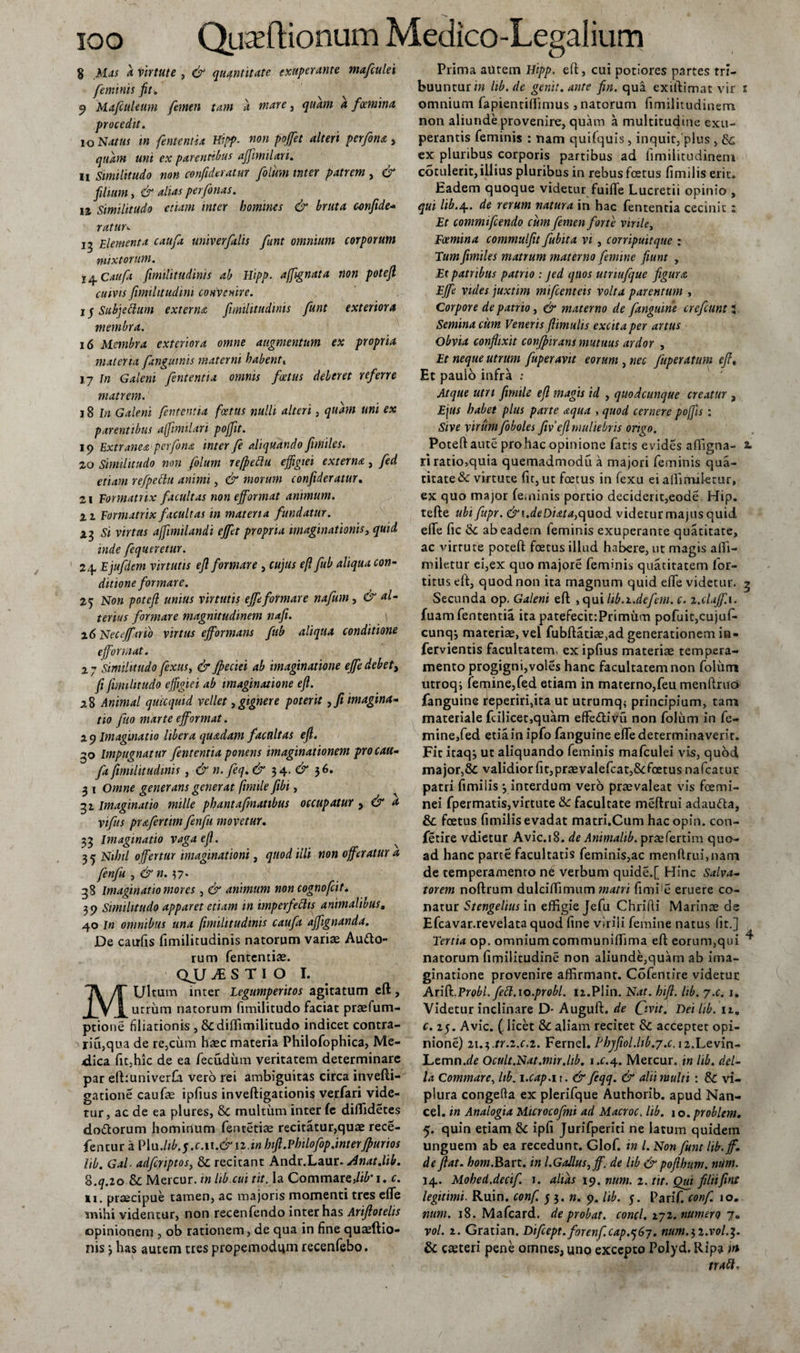 100 Quæſtionum Medico-Legalium
8 Mas à virtute , & quantitate exuperante maſculei
ſeminis fit.
9 Maſculeum ſemen tam à mare, quàm à fœmina
procedit.
10 Natus in ſententia Hipp. non poſſet alteri perſonæ ,
quàm uni ex parentibus aſſimilari.
11 Similitudo non conſideratur ſolùm inter patrem , &
filium, & alias perſonas.
12 Similitudo etiam inter homines & bruta conſide-
ratur.
13 Elementa cauſa univerſalis ſunt omnium corporum
mixtorum.
14 Cauſa ſimilitudinis ab Hipp. aſſignata non poteſt
cuivis ſimilitudini convenire.
15 Subjectum externæ ſimilitudinis ſunt exteriora
membra.
16 Membra exteriora omne augmentum ex propria
materia ſanguinis materni habent.
17 In Galeni ſententia omnis fœtus deberet referre
matrem.
18 In Galeni ſententia fœtus nulli alteri , quàm uni ex
parentibus aſſimilari poſſit.
19 Extraneæ perſonæ inter ſe aliquando ſimiles.
20 Similitudo non ſolum reſpectu effigiei externæ , ſed
etiam reſpectu animi , & morum conſideratur.
21 Formatrix facultas non efformat animum.
22 Formatrix facultas in materia fundatur.
23 Si virtus aſſimilandi eſſet propria imaginationis, quid
inde ſequeretur.
24 Ejuſdem virtutis eſt formare , cujus eſt ſub aliqua con-
ditione formare.
25 Non poteſt unius virtutis eſſe formare naſum , & al-
terius formare magnitudinem naſi.
26 Neceſſariò virtus efformans ſub aliqua conditione
efformat.
27 Similitudo ſexus, & ſpeciei ab imaginatione eſſe debet,
ſi ſimilitudo effigiei ab imaginatione eſt.
28 Animal quicquid vellet , gignere poterit , ſi imagina-
tio ſuo marte efformat.
29 Imaginatio libera quædam facultas eſt.
30 Impugnatur ſententia ponens imaginationem pro cau-
ſa ſimilitudinis , & n. ſeq. & 34. & 36.
31 Omne generans generat ſimile ſibi ,
32 Imaginatio mille phantaſmatibus occupatur , & à
viſus præſertim ſenſu movetur.
33 Imaginatio vaga eſt.
35 Nihil offertur imaginationi , quod illi non offeratur à
ſenſu , & n. 37.
38 Imaginatio mores , & animum non cognoſcit.
39 Similitudo apparet etiam in imperfectis animalibus.
40 In omnibus una ſimilitudinis cauſa aſſignanda.
De cauſis ſimilitudinis natorum variæ Aucto-
rum ſententiæ.
QUÆSTIO I.
MUltum inter Legumperitos agitatum eſt ,
utrùm natorum ſimilitudo faciat præſum-
ptionẽ filiationis , & diſſimilitudo indicet contra-
riũ,qua de re,cùm hæc materia Philoſophica, Me-
dica ſit,hîc de ea ſecũdùm veritatem determinare
par eſt:univerſa verò rei ambiguitas circa inveſti-
gationẽ cauſæ ipſius inveſtigationis verſari vide-
tur , ac de ea plures, & multùm inter ſe diſſidẽtes
doctorum hominum ſentẽtiæ recitãtur,quæ recẽ-
ſentur à Plu.lib.5.c.11.& 12.in hiſt.Philoſop.inter ſpurios
lib. Gal. adſcriptos, & recitant Andr.Laur. Anat.lib.
8.q.20 & Mercur. in lib cui tit. la Commare,lib. 1. c.
11. præcipuè tamen, ac majoris momenti tres eſſe
mihi videntur, non recenſendo inter has Ariſtotelis
opinionem , ob rationem , de qua in fine quæſtio-
nis ; has autem tres propemodum recenſebo.
Prima autem Hipp. eſt , cui potiores partes tri-
buuntur in lib. de genit. ante fin. quâ exiſtimat vir 1
omnium ſapientiſſimus , natorum ſimilitudinem
non aliundè provenire, quàm à multitudine exu-
perantis ſeminis : nam quiſquis , inquit, plus , &
ex pluribus corporis partibus ad ſimilitudinem
cõtulerit, illius pluribus in rebus fœtus ſimilis erit.
Eadem quoque videtur fuiſſe Lucretii opinio ,
qui lib.4. de rerum natura in hac ſententia cecinit :
Et commiſcendo cùm ſemen fortè virile,
Fœmina commulſit ſubita vi , corripuitque :
Tum ſimiles matrum materno ſemine fiunt ,
Et patribus patrio : ſed quos utriuſque figuræ
Eſſe vides juxtim miſcenteis volta parentum ,
Corpore de patrio , & materno de ſanguine creſcunt :
Semina cùm Veneris ſtimulis excita per artus
Obvia conflixit conſpirans mutuus ardor ,
Et neque utrum ſuperavit eorum , nec ſuperatum eſt.
Et paulò infrà :
Atque utri ſimile eſt magis id , quodcunque creatur ,
Ejus habet plus parte æqua , quod cernere poſſis :
Sive virûm ſoboles ſiv'eſt muliebris origo.
Poteſt autẽ pro hac opinione ſatis evidẽs aſſigna- 2
ri ratio,quia quemadmodũ à majori ſeminis quã-
titate & virtute fit, ut fœtus in ſexu ei aſſimiletur,
ex quo major ſeminis portio deciderit,eodẽ Hip.
teſte ubi ſupr. & 1.de Diata,quod videtur majus quid
eſſe ſic & ab eadem ſeminis exuperante quãtitate,
ac virtute poteſt fœtus illud habere, ut magis aſſi-
miletur ei,ex quo majorẽ ſeminis quãtitatem ſor-
titus eſt, quod non ita magnum quid eſſe videtur. 3
Secunda op. Galeni eſt , qui lib.2.de ſem. c. 2.claſſ.1.
ſuam ſententiã ita patefecit:Primùm poſuit,cujuſ-
cunq; materiæ, vel ſubſtãtiæ,ad generationem in-
ſervientis facultatem, ex ipſius materiæ tempera-
mento progigni,volẽs hanc facultatem non ſolùm
utroq; ſemine,ſed etiam in materno,ſeu menſtruo
ſanguine reperiri,ita ut utrumq; principium, tam
materiale ſcilicet,quàm effectivũ non ſolùm in ſe-
mine,ſed etiã in ipſo ſanguine eſſe determinaverit.
Fit itaq; ut aliquando ſeminis maſculei vis, quòd
major,& validior ſit,prævaleſcat,& fœtus naſcatur
patri ſimilis ; interdum verò prævaleat vis fœmi-
nei ſpermatis,virtute & facultate mẽſtrui adaucta,
& fœtus ſimilis evadat matri.Cum hac opin. con-
ſẽtire vdietur Avic.18. de Animalib. præſertim quo-
ad hanc partẽ facultatis ſeminis,ac menſtrui,nam
de temperamento ne verbum quidẽ.[ Hinc Salva-
torem noſtrum dulciſſimum matri ſimilẽ eruere co-
natur Stengelius in effigie Jeſu Chriſti Marinæ de
Eſcavar.revelata quod ſine virili ſemine natus ſit.]
Tertia op. omnium communiſſima eſt eorum,qui 4
natorum ſimilitudinẽ non aliundè,quàm ab ima-
ginatione provenire affirmant. Cõſentire videtur
Ariſt.Probl. ſect.10.probl. 12.Plin. Nat. hiſt. lib. 7.c. 1.
Videtur inclinare D. Auguſt. de Civit. Dei lib. 12.
c. 25. Avic. ( licèt & aliam recitet & acceptet opi-
nionẽ) 21.3.tr.2.c.2. Fernel. Phyſiol.lib.7.c.12.Levin-
Lemn.de Ocult.Nat.mir.lib. 1.c.4. Mercur. in lib. del-
la Commare, lib. 1.cap.11. & ſeqq. & alii multi : & vi-
plura congeſta ex pleriſque Authorib. apud Nan-
cel. in Analogia Microcoſmi ad Macroc. lib. 10.problem.
5. quin etiam & ipſi Juriſperiti ne latum quidem
unguem ab ea recedunt. Gloſ. in l. Non ſunt lib. ff.
de ſtat. hom.Bart. in l.Gallus, ff. de lib & poſthum. num.
14. Mohed.deciſ. 1. aliàs 19. num. 2. tit. Qui filii ſint
legitimi. Ruin. conſ. 53. n. 9. lib. 5. Pariſ. conſ. 10.
num. 18. Maſcard. de probat. concl. 272. numero 7.
vol. 2. Gratian. Diſcept. forenſ.cap.567. num.32.vol.3.
& cæteri penè omnes, uno excepto Polyd. Ripa in
tract.